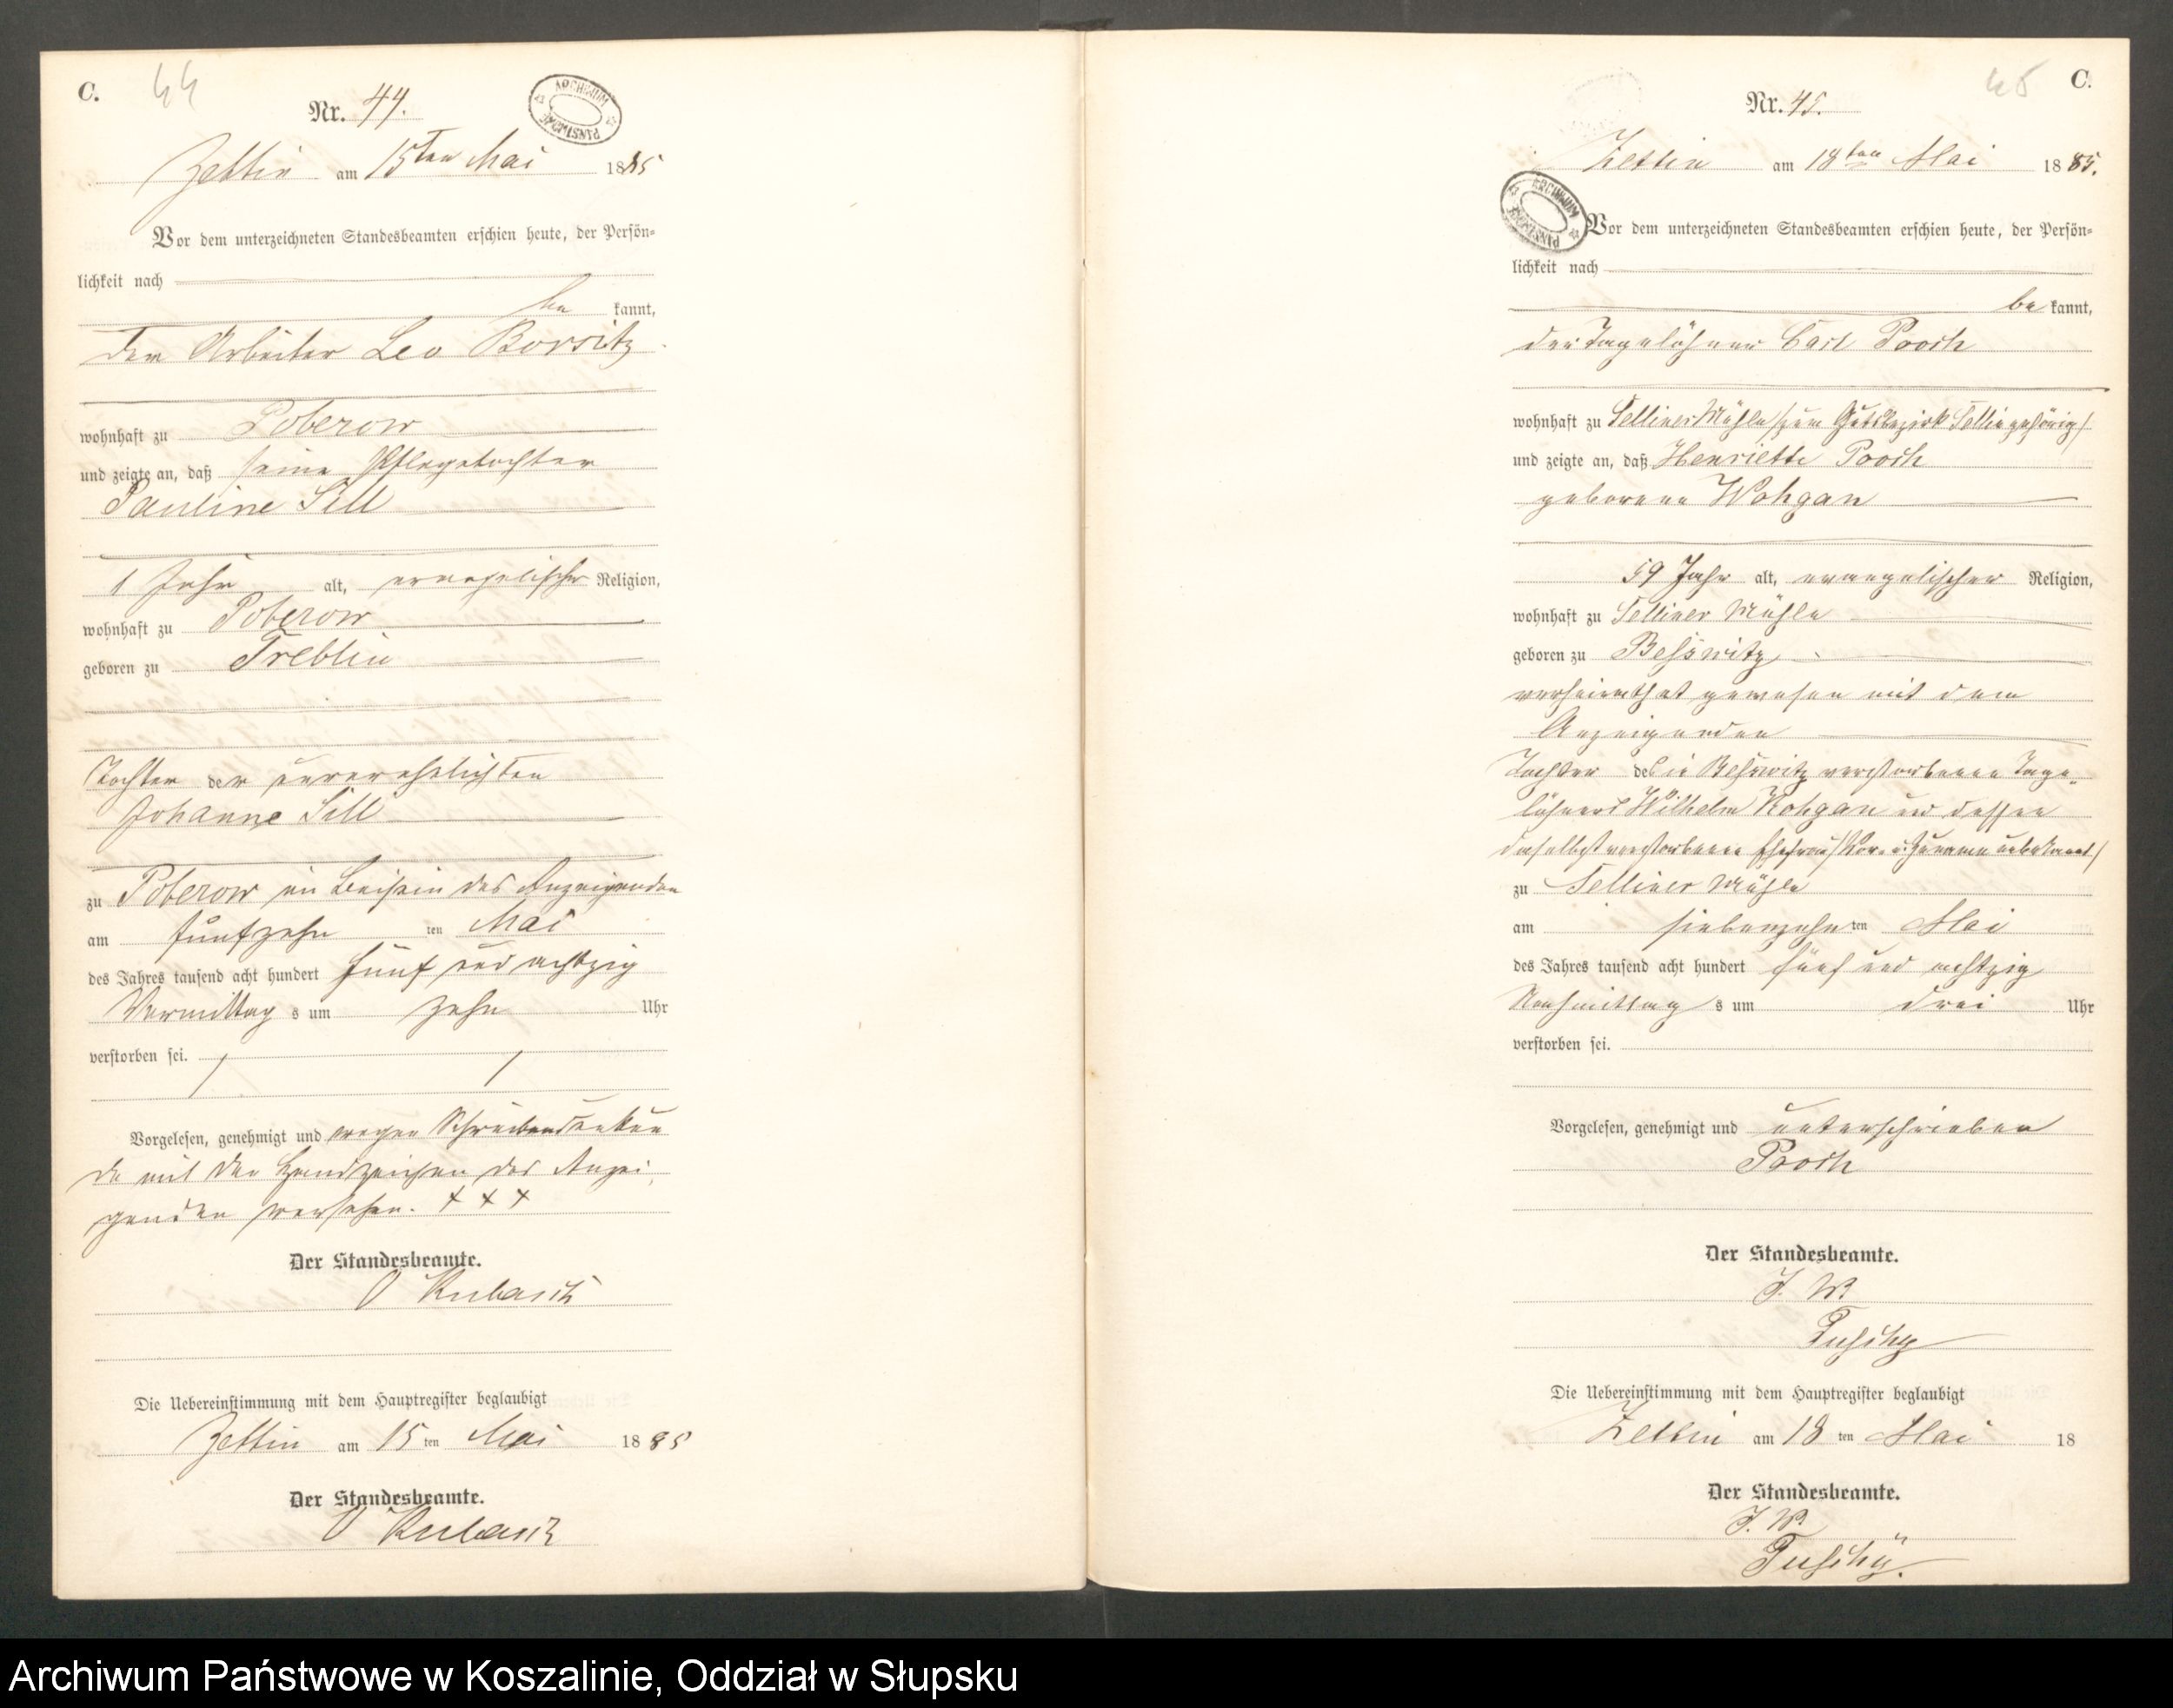 C.
44
Nr. 44.
ARCHIWUM PAŃSTWOWE
Zettin am 15ten Mai 1885
Vor dem unterzeichneten Standesbeamten erschien heute, der Persön-
lichkeit nach
be kannt,
der Arbeiter Leo Borsitz
wohnhaft zu Poberow
und zeigte an, daß seine Pflegetochter
Pauline Sill
1 Jahr alt, evangelischer Religion,
wohnhaft zu Poberow
geboren zu Treblin
Tochter der unverehelichten
Johanne Sill
zu Poberow in Beisein des Anzeigenden
am fünfzehn ten Mai
des Jahres tausend acht hundert fünf und achtzig
Vormittag s um zehn Uhr
verstorben sei.
Vorgelesen, genehmigt und wegen
de mit den Handzeichen des Anzei
genden versehen. + + +
Der Standesbeamte.
Die Uebereinstimmung mit dem Hauptregister beglaubigt
Zettin am 15 ten Mai 1885
Der Standesbeamte.
45
C.
Nr. 45.
ARCHIWUM PAŃSTWOWE
Zettin am 18ten Mai 1885.
Vor dem unterzeichneten Standesbeamten erschien heute, der Persön-
lichkeit nach
be kannt,
der Tagelöhner Carl Pooch
wohnhaft zu Selliner Mühle /zum Gutsbezirk Sellin gehörig/
und zeigte an, daß Henriette Pooch
geborene Wohgan
59 Jahr alt, evangelischer Religion,
wohnhaft zu Selliner Mühle
geboren zu Beßwitz
verheirathet gewesen mit dem
Anzeigenden
Tochter des in Beßwitz verstorbenen Tage-
löhners Wilhelm Wohgan und dessen
daselbst verstorbenen Ehefrau /Vor- u. Zuname unbekannt/
zu Selliner Mühle
am siebenzehn ten Mai
des Jahres tausend acht hundert fünf und achtzig
Nachmittag s um drei Uhr
verstorben sei.
Vorgelesen, genehmigt und unterschrieben
Pooch
Der Standesbeamte.
I. V.
Die Uebereinstimmung mit dem Hauptregister beglaubigt
Zettin am 18 ten Mai 18
Der Standesbeamte.
I. V.
Archiwum Państwowe w Koszalinie, Oddział w Słupsku